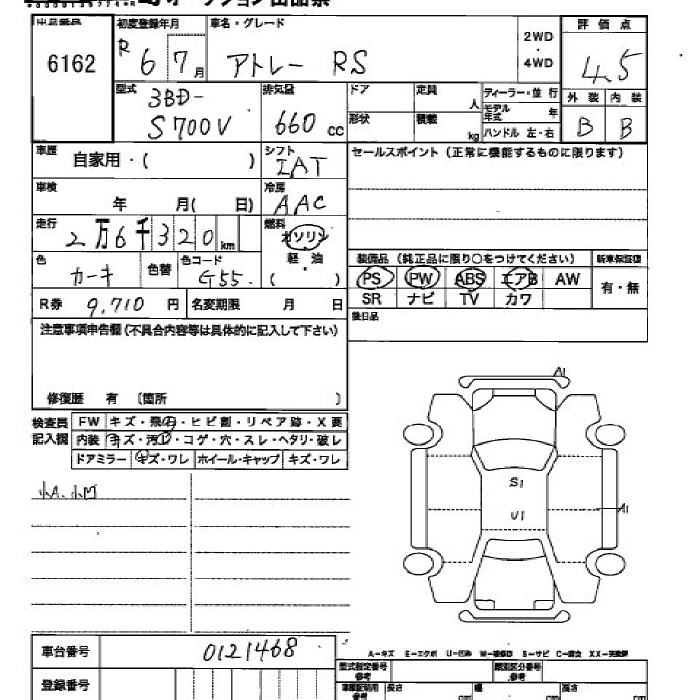 出品番号 初度登録年月 車名・グレード 2WD・4WD 評価点
6162 R6 7月 アトレー RS 4.5
型式 3BD-S700V 排気量 660 cc ドア 定員 人 ディーラー・並行 外装 内装
形状 積載 kg モデル年式 年 ハンドル 左・右 B B
車歴 自家用・( ) シフト IAT セールスポイント(正常に機能するものに限ります)
車検 年 月( 日) 冷房 AAC
走行 2万6千320km 燃料 ガソリン 軽・油 ( )
色 カーキ 色替 色コード G55 装備品(純正品に限り○をつけてください) 新車保証書
PS PW ABS エアB AW 有・無
R券 9,710円 名変期限 月 日 SR ナビ TV カワ
後日品
注意事項申告欄(不具合内容等は具体的に記入して下さい)
修復歴 有 〔箇所 〕
検査員記入欄 FW キズ・飛石・ヒビ割・リペア跡・X要
内装 キズ・汚れ・コゲ・穴・スレ・ヘタリ・破レ
ドアミラー キズ・ワレ ホイール・キャップ キズ・ワレ
小A.小凹
A1
S1
U1
A1
車台番号 0121468
A-キズ E-エクボ U-凹み W-補修跡 S-サビ C-腐食 XX-交換済
登録番号 型式指定番号 参考 類別区分番号 参考
長さ cm 幅 cm 高さ cm